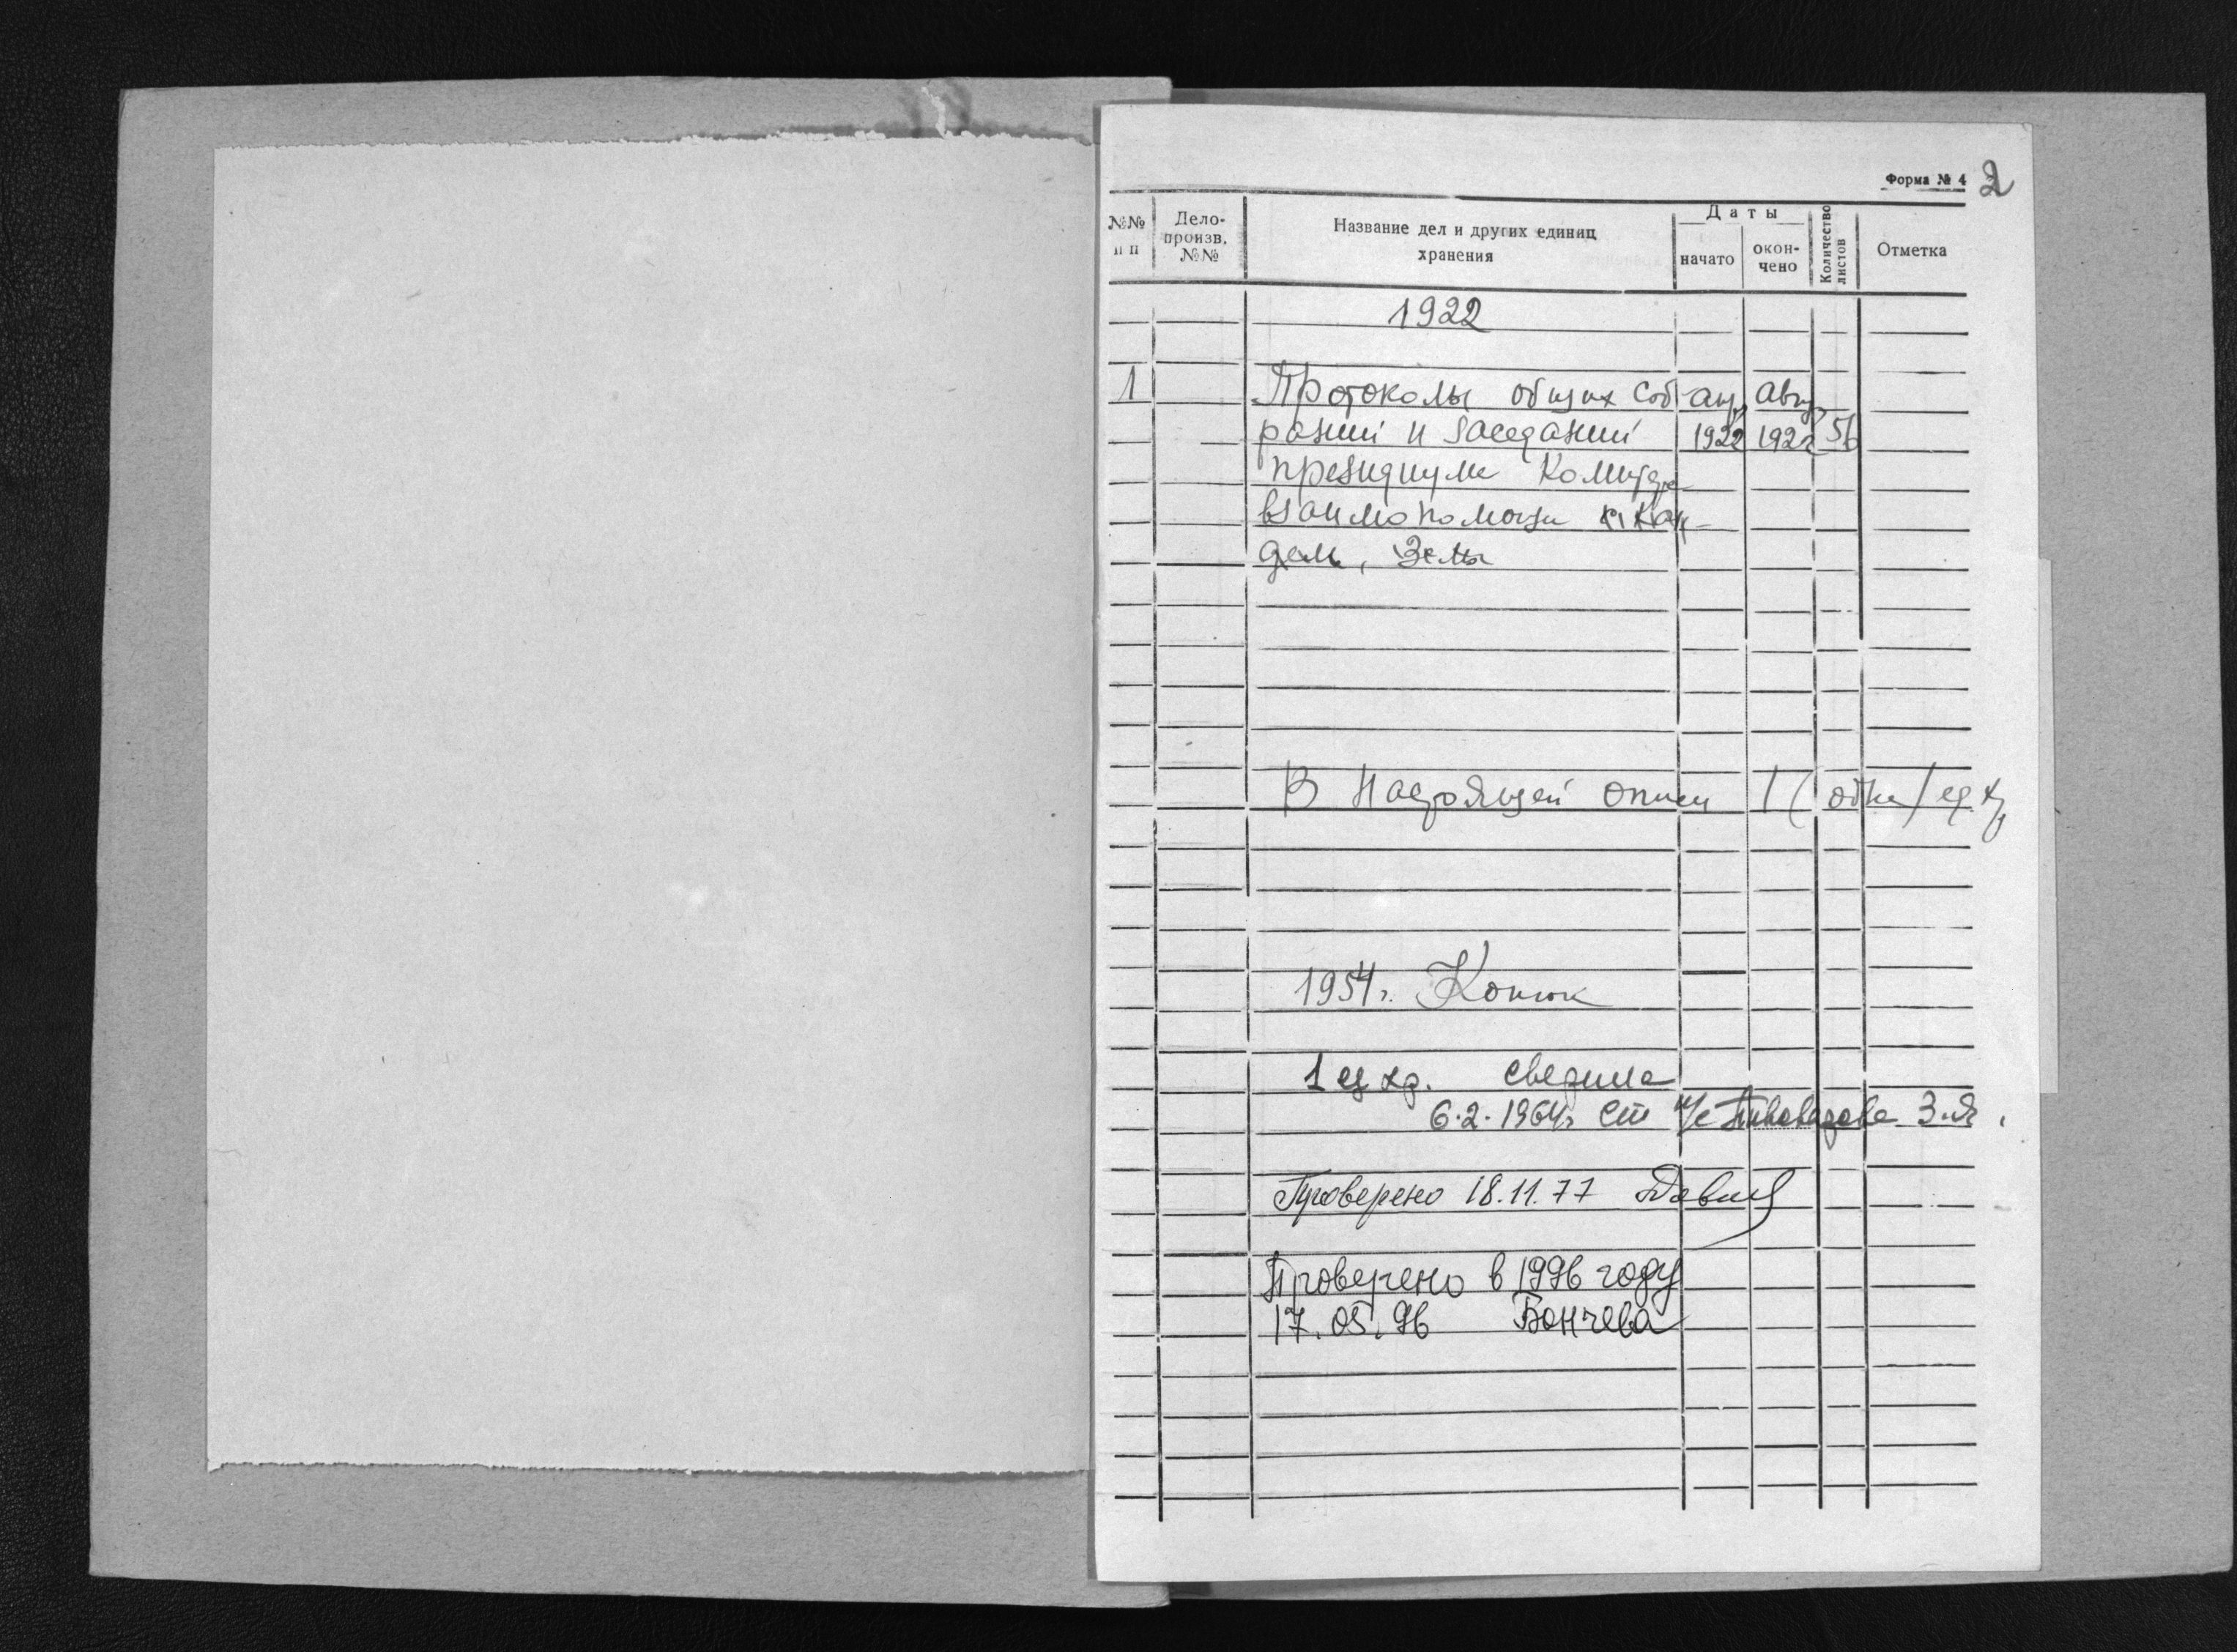 Форма № 4 2
№№ п п
Дело-произв. №№
Название дел и других единиц хранения
Даты
начато
окон-чено
Количество листов
Отметка
1922
1 Протоколы общих соб- апр. авг.
раний и заседаний 1922 1922 56
президиума комитета
взаимопомощи с. Кан-
дель,
В настоящей описи 1 (одна) ед. хр.
1954 г. Конюк
1 ед хр. сверила
6.2.1964г ст н/с Пивоварова З.Я.
Проверено 18.11.77
Проверено в 1996 году
17.05.96 Бончева